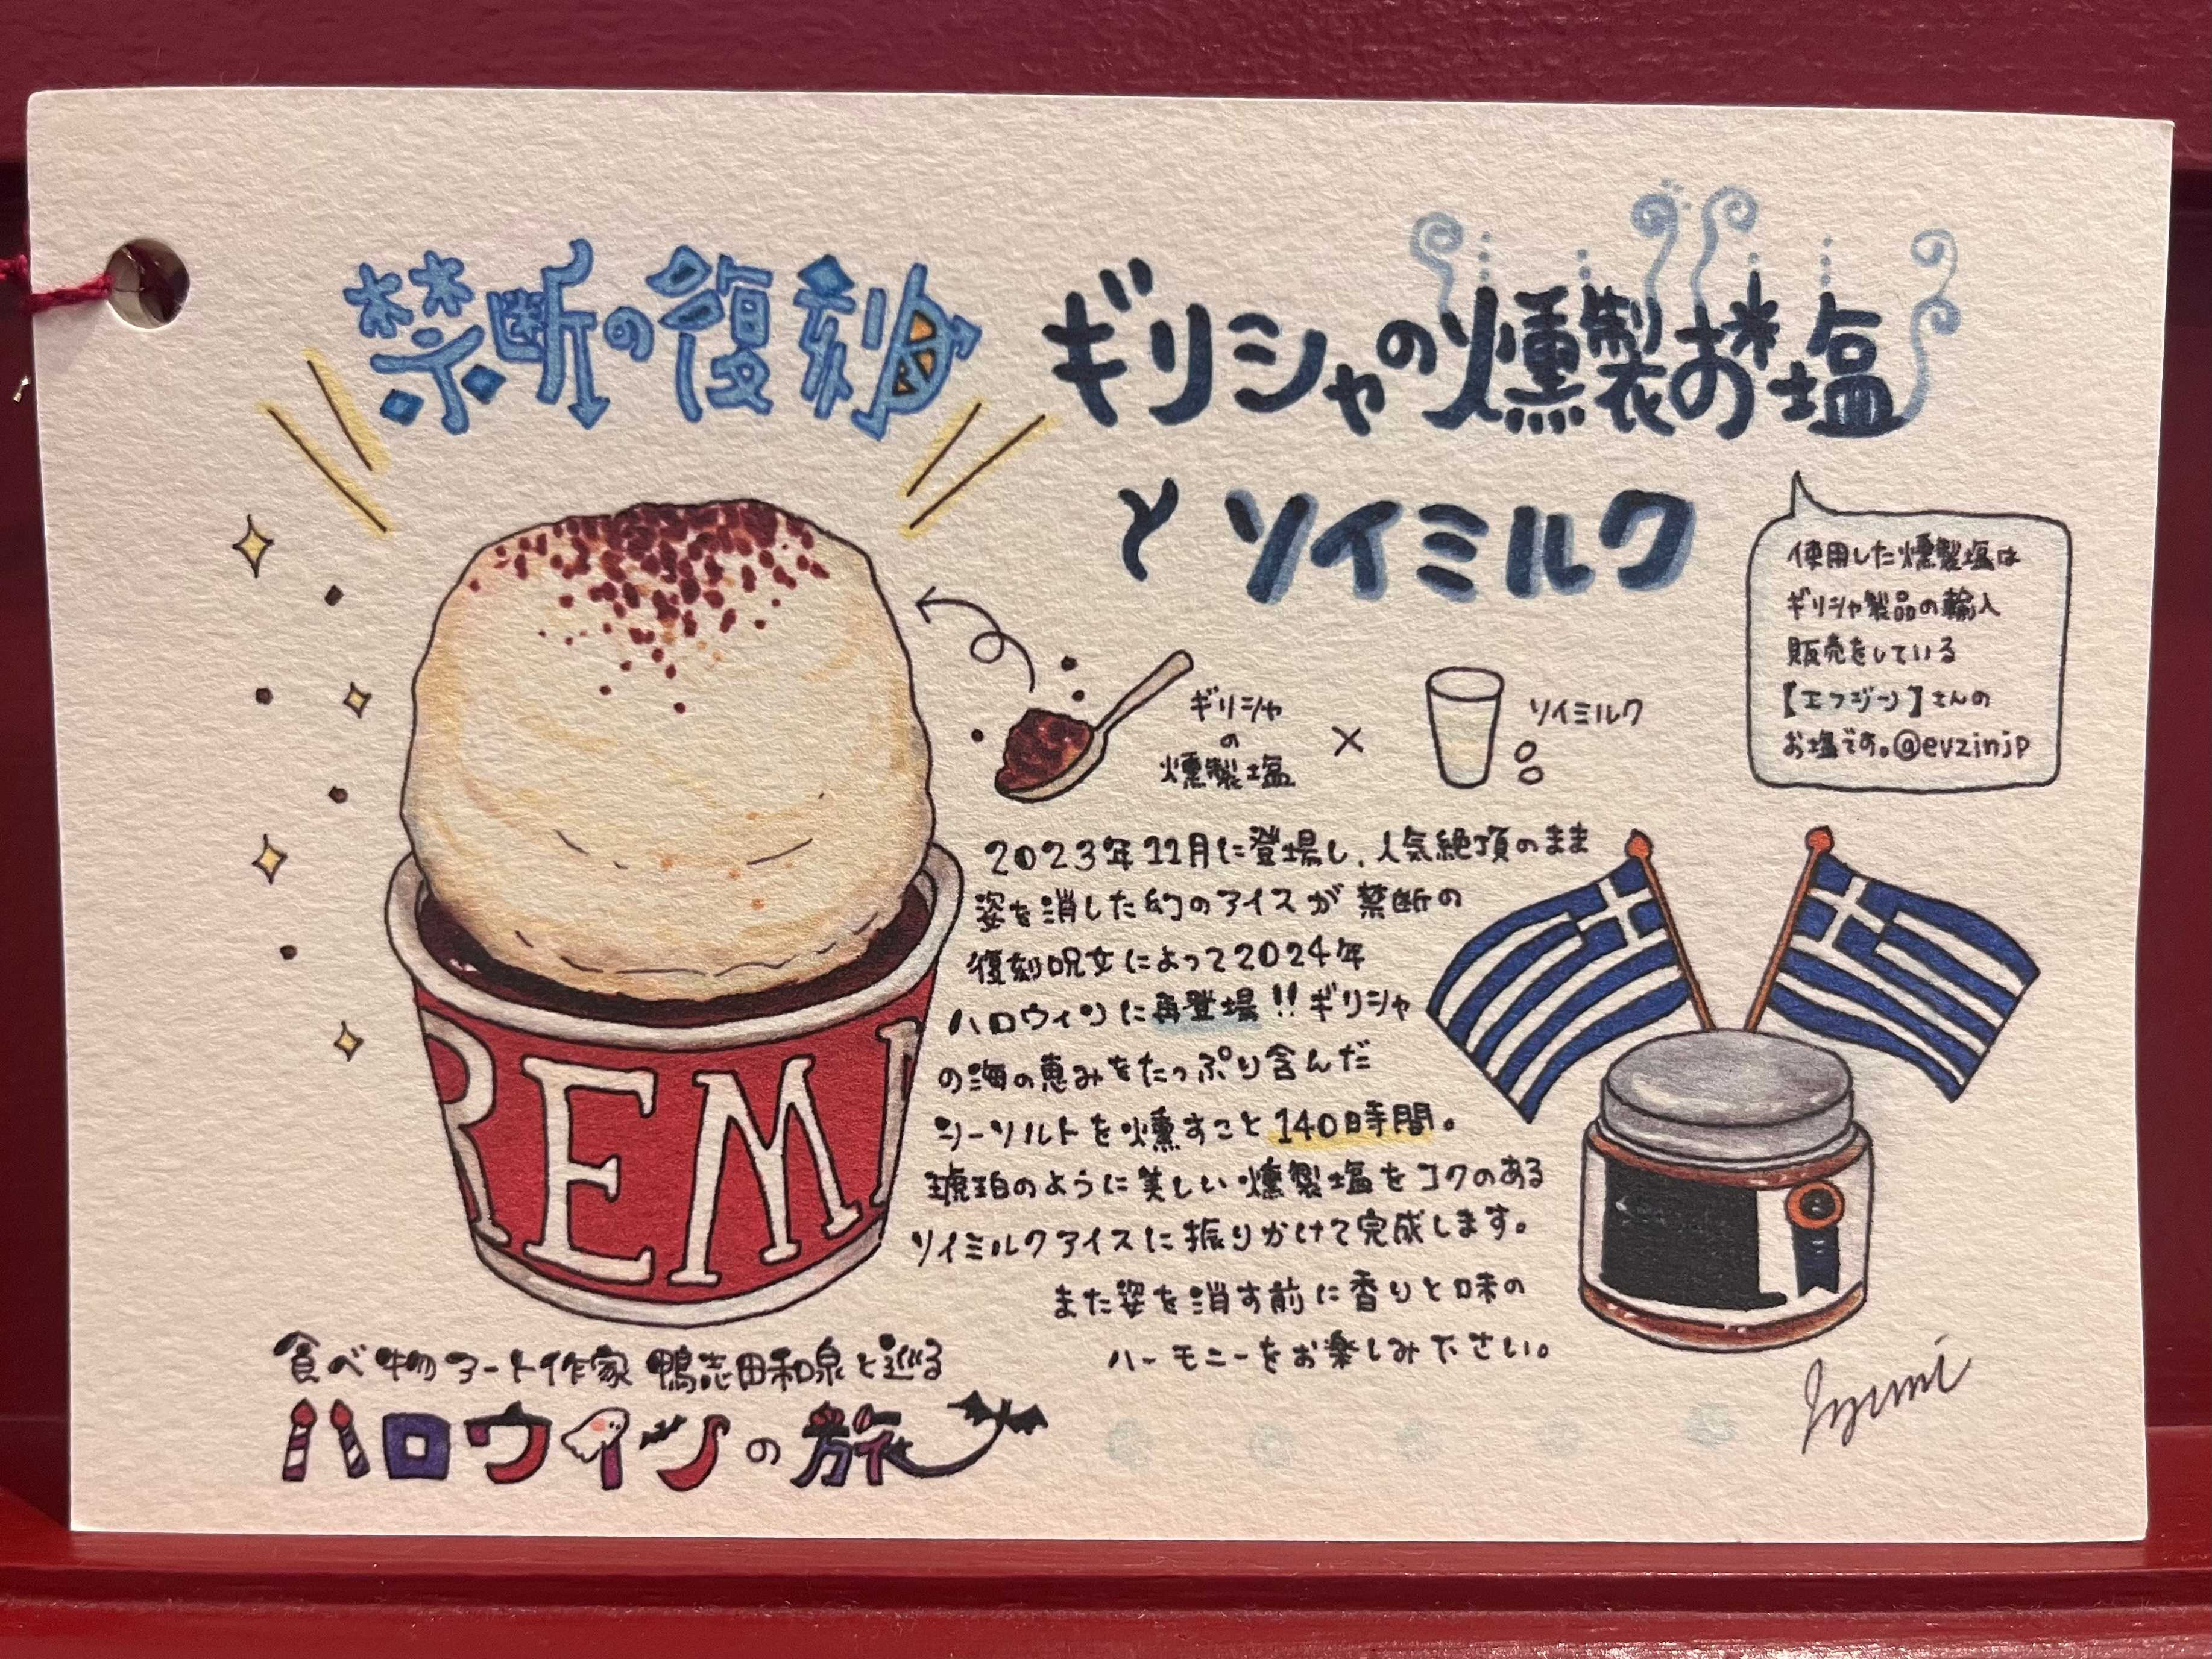 禁断の復刻
ギリシャの燻製お塩
とソイミルク
使用した燻製塩は
ギリシャ製品の輸入
販売をしている
【エフジン】さんの
お塩です。@evzinjp
ギリシャ
の
燻製塩
×
ソイミルク
2023年11月に登場し、人気絶頂のまま
姿を消した幻のアイスが禁断の
復刻呪文によって2024年
ハロウィンに再登場!!ギリシャ
の海の恵みをたっぷり含んだ
シーソルトを燻すこと140時間。
琥珀のように美しい燻製塩をコクのある
ソイミルクアイスに振りかけて完成します。
また姿を消す前に香りと味の
ハーモニーをお楽しみ下さい。
REM
食べ物アート作家 鴨志田和泉と巡る
ハロウィンの旅
Izumi